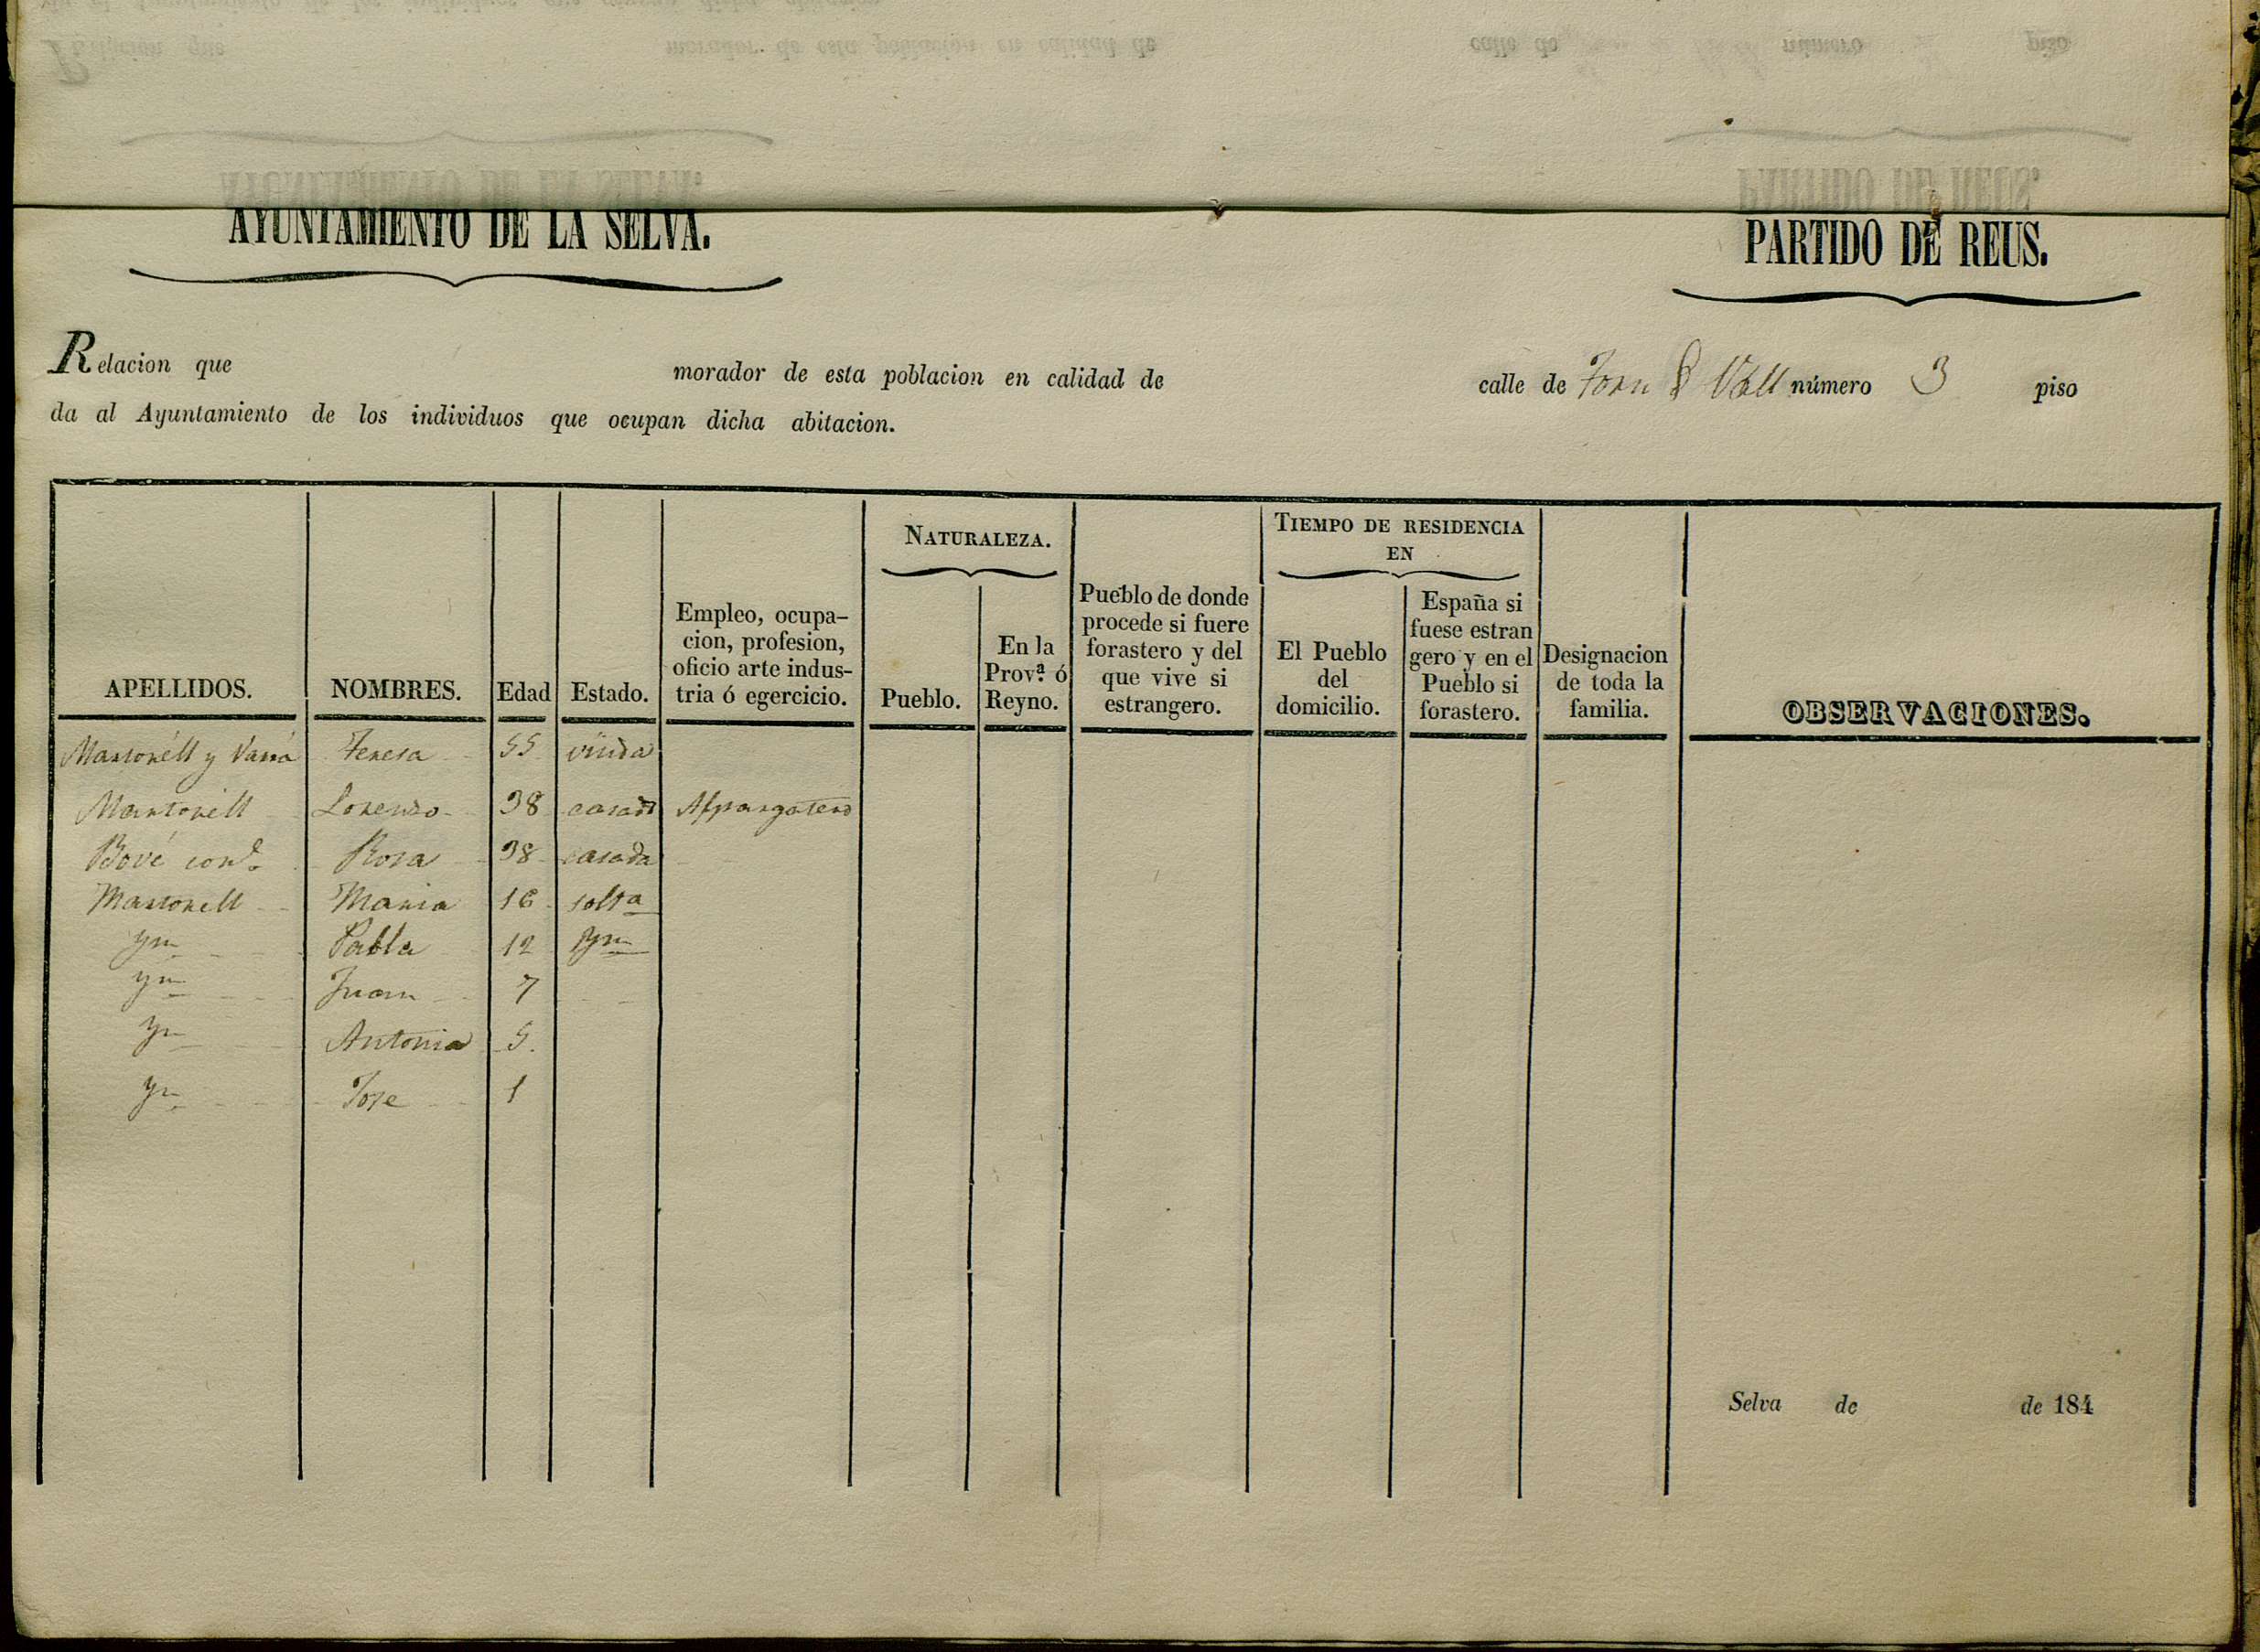 AYUNTAMIENTO DE LA SELVA.
PARTIDO DE REUS.
Relacion que morador de esta poblacion en calidad de calle de Forn Vall número 3 piso
da al Ayuntamiento de los individuos que ocupan dicha abitacion.
APELLIDOS.
NOMBRES.
Edad
Estado.
Empleo, ocupa-
cion, profesion,
oficio arte indus-
tria ó egercicio.
NATURALEZA.
Pueblo.
En la
Prov.ª ó
Reyno.
Pueblo de donde
procede si fuere
forastero y del
que vive si
estrangero.
TIEMPO DE RESIDENCIA
EN
El Pueblo
del
domicilio.
España si
fuese estran
gero y en el
Pueblo si
forastero.
Designacion
de toda la
familia.
OBSERVACIONES.
Martorell y Teresa 55 viuda
Martorell Lorenzo 38 casado Alpargatero
Bové Rosa 38 casada
Martorell Maria 16 solta
ym Pabla 12 ym
ym Juan 7
ym Antonia 5
ym Jose 1
Selva de de 184